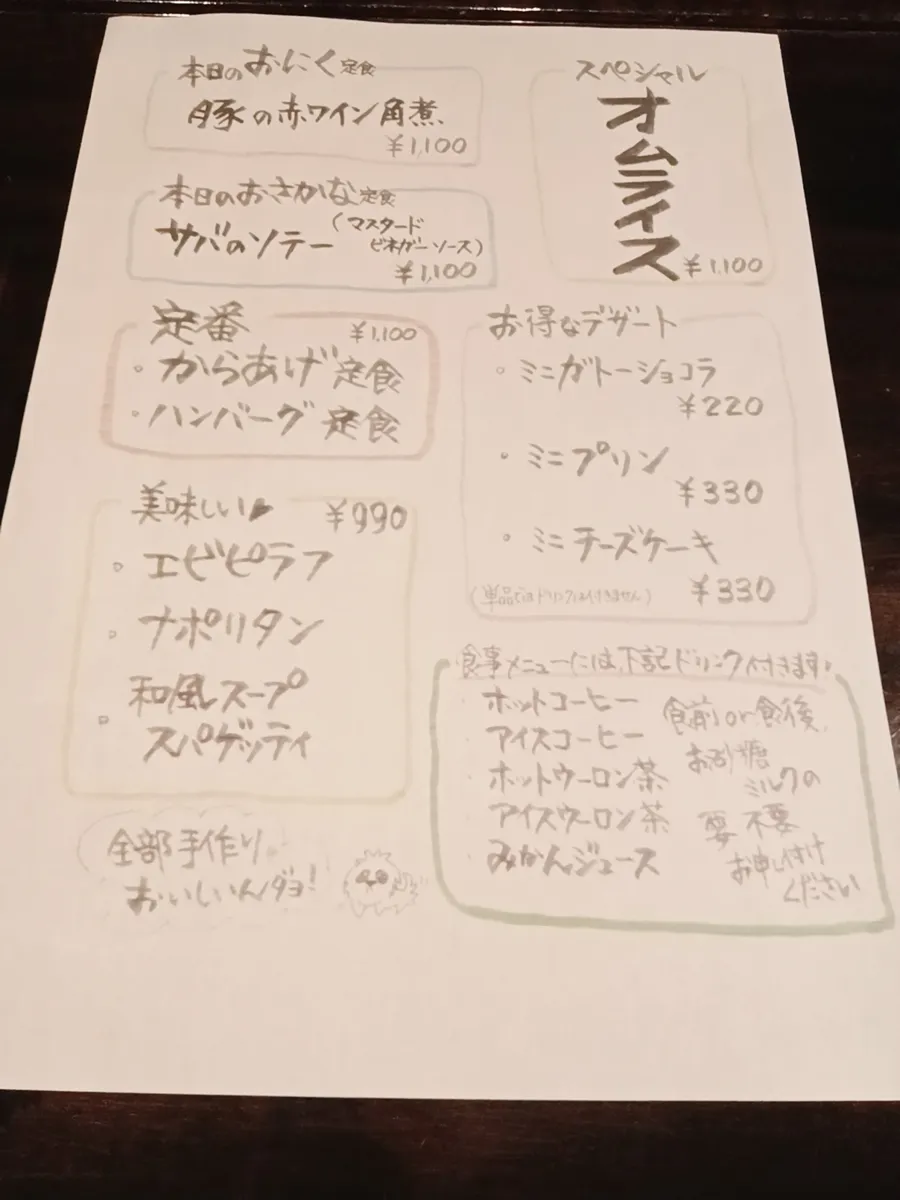 本日のおにく定食
豚の赤ワイン角煮
¥1,100
本日のおさかな定食
サバのソテー
(マスタード
ビネガーソース)
¥1,100
スペシャル
オムライス
¥1,100
定番
¥1,100
・からあげ定食
・ハンバーグ定食
お得なデザート
・ミニガトーショコラ
¥220
・ミニプリン
¥330
・ミニチーズケーキ
¥330
(単品ではドリンクは付きません)
美味しい♪
¥990
・エビピラフ
・ナポリタン
・和風スープ
スパゲッティ
食事メニューには、下記ドリンク付きます!
・ホットコーヒー
・アイスコーヒー
・ホットウーロン茶
・アイスウーロン茶
・みかんジュース
食前or食後、
お砂糖
ミルクの
要 不要
お申し付け
ください
全部手作り
おいしいんダヨ!